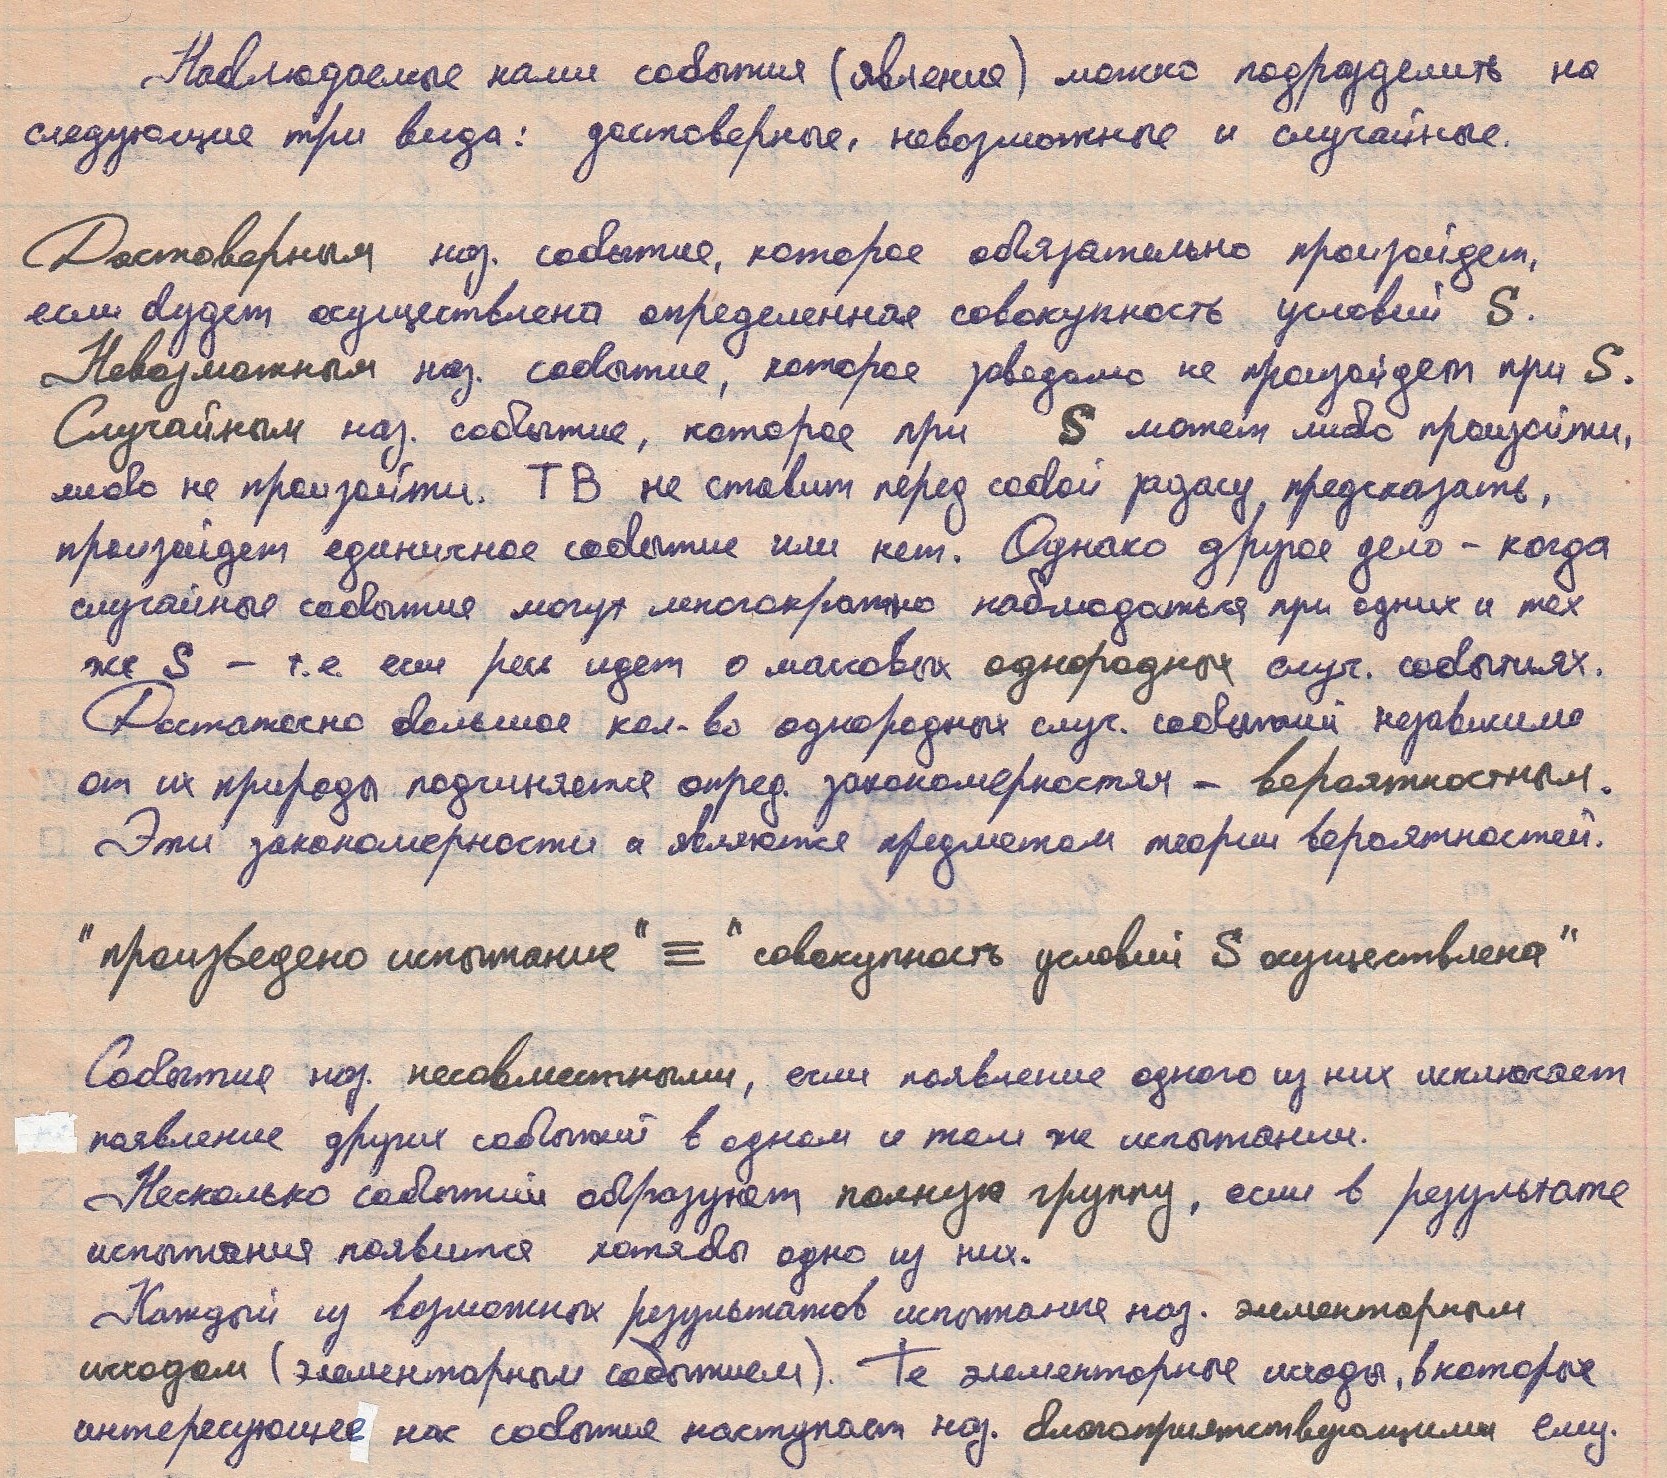 Наблюдаемые нами события (явления) можно подразделить на
следующие три вида: достоверные, невозможные и случайные.
Достоверным наз. событие, которое обязательно произойдет,
если будет осуществлена определенная совокупность условий S.
Невозможным наз. событие, которое заведомо не произойдет при S.
Случайным наз. событие, которое при S может либо произойти,
либо не произойти. ТВ не ставит перед собой задачу предсказать,
произойдет единичное событие или нет. Однако другое дело – когда
случайные события могут многократно наблюдаться при одних и тех
же S – т.е. если речь идет о массовых однородных случ. событиях.
Достаточно большое кол-во однородных случ. событий независимо
от их природы подчиняется опред. закономерностям – вероятностным.
Эти закономерности и являются предметом теории вероятностей.
"произведено испытание" ≡ "совокупность условий S осуществлена"
События наз. несовместными, если появление одного из них исключает
появление других событий в одном и том же испытании.
Несколько событий образуют полную группу, если в результате
испытания появится хотябы одно из них.
Каждый из возможных результатов испытания наз. элементарным
исходом (элементарным событием). Те элементарные исходы, в которые
интересующее нас событие наступает наз. благоприятствующими ему.